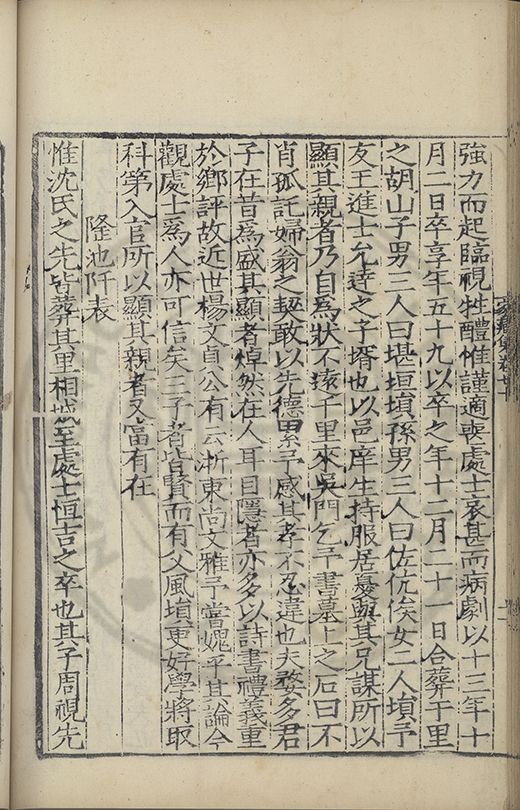 強力而起臨視牲醴惟謹適喪處士哀甚而病劇以十三年十
月二日卒享年五十九以卒之年十二月二十一日合葬于里
之胡山子男三人曰堪垣塤孫男三人曰佐伉俟女二人塤予
友王進士允達之子壻也以邑庠生持服居憂與其兄謀所以
顯其親者乃自為狀不遠千里來吳門乞予書墓上之石曰不
肖孤託婦翁之契敢以先德累予感其孝不忍違也夫婺多君
子在昔為盛其顯者焯然在人耳目隱者亦多以詩書禮義重
於鄉評故近世楊文貞公有云浙東尚文雅予嘗媿乎其論今
觀處士為人亦可信矣三子者皆賢而有父風塤更好學將取
科第入官所以顯其親者又當有在
隆池阡表
惟沈氏之先皆葬其里相城至處士恒吉之卒也其子周視先